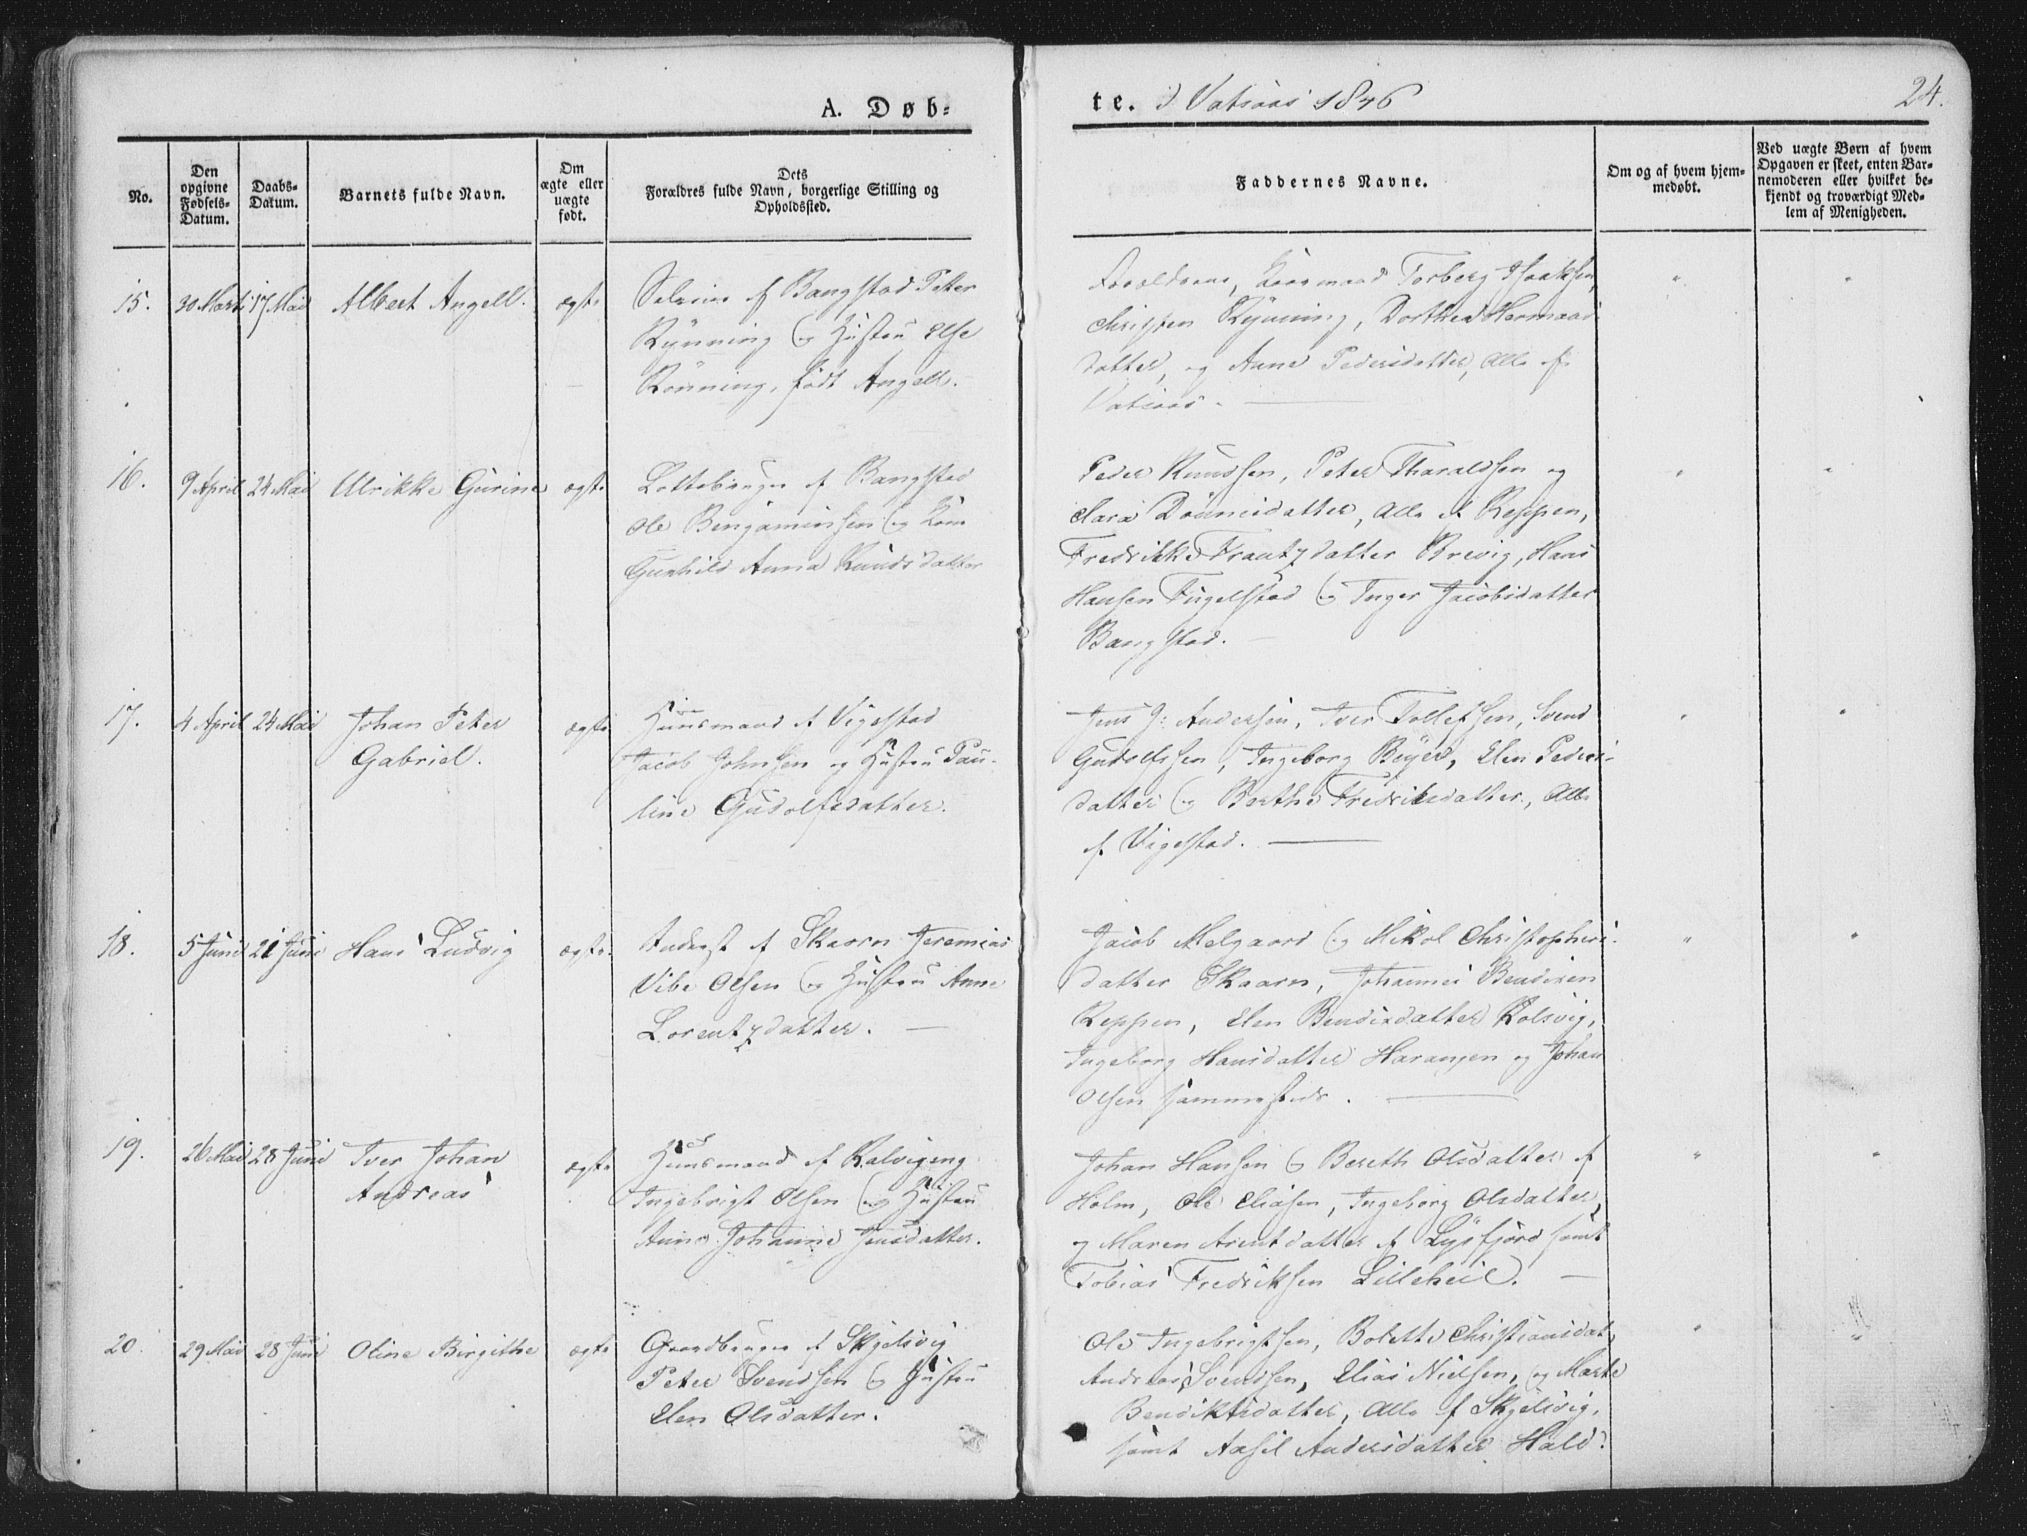 A. Døb-
te. i Vatsaas 1846
24.
No.
Den opgivne Fødsels-Datum.
Daabs-Datum.
Barnets fulde Navn.
Om ægte eller uægte født.
Dets Forældres fulde Navn, borgerlige Stilling og Opholdssted.
Faddernes Navne.
Om og af hvem hjem-medøbt.
Ved uægte Børn af hvem Opgaven er skeet, enten Bar-nemoderen eller hvilket be-kjendt og troværdigt Med-lem af Menigheden.
15. 30 Marts 17 Mai Albert Angell. ægte
af Bangstad Peter
Rynning og Hustru Else
Rønning, født Angell.
Forældrene, Torberg Isaksen,
Christen Rynning, Dorthea
datter, og Anne Pedersdatter, Alle af
Vatsaas.
16. 9 April 24 Mai Ulrikke Gurine ægte
af Bangstad
Ole Benjaminsen og Kone
Gunhild Anna Knudsdatter
Peder Knudsen, Peter Tharaldsen og
datter, Alle af Reppen,
Fredrikke Frantzdatter Brevig, Hans
Hansen Fugelstad og Inger Jacobsdatter
Bangstad.
17. 4 April 24 Mai Johan Peter ægte
Gabriel.
Huusmand af Vigestad
Jacob Johnsen og Hustru Pau-
line Gudolfsdatter.
Jens J: Andersen, Iver Tollefsen, Svend
Gudolfsen, Ingeborg Beyer, Elen Peders-
datter og Berthe Fredriksdatter, Alle
af Vigestad.
18. 5 Juni 21 Juni Hans Ludvig ægte
af Skaarn Jeremias
Vibe Olsen og Hustru Anne
Lorentzdatter.
Jacob Melgaard og Mikol Christophers-
datter Skaarn, Johannes Bendixen
Reppen, Elen Bendixdatter Kolsvig,
Ingeborg Hansdatter Harangen og Johan
Olsen sammesteds.
19. 26 Mai 28 Juni Iver Johan ægte
Andreas
Huusmand af Kalvigeng
Ingebrigt Olsen og Hustru
Anne Johanne Jensdatter.
Johan Hansen og Bereth Olsdatter af
Holm, Ole Eliasen, Ingeborg Olsdatter,
og Maren Arentdatter af Lysfjord samt
Tobias Fredriksen Lilleheil.
20. 29 Mai 28 Juni Oline Birgithe ægte
Gaardbruger af Skjelsvig
Peter Svendsen og Hustru
Elen Olsdatter.
Ole Ingebrigtsen, Bolette Christiansdat,
Andreas Svendsen, Elias Nielsen, og Marte
Bendiktsdatter, Alle af Skjelsvig,
samt Aasil Andersdatter Hald.